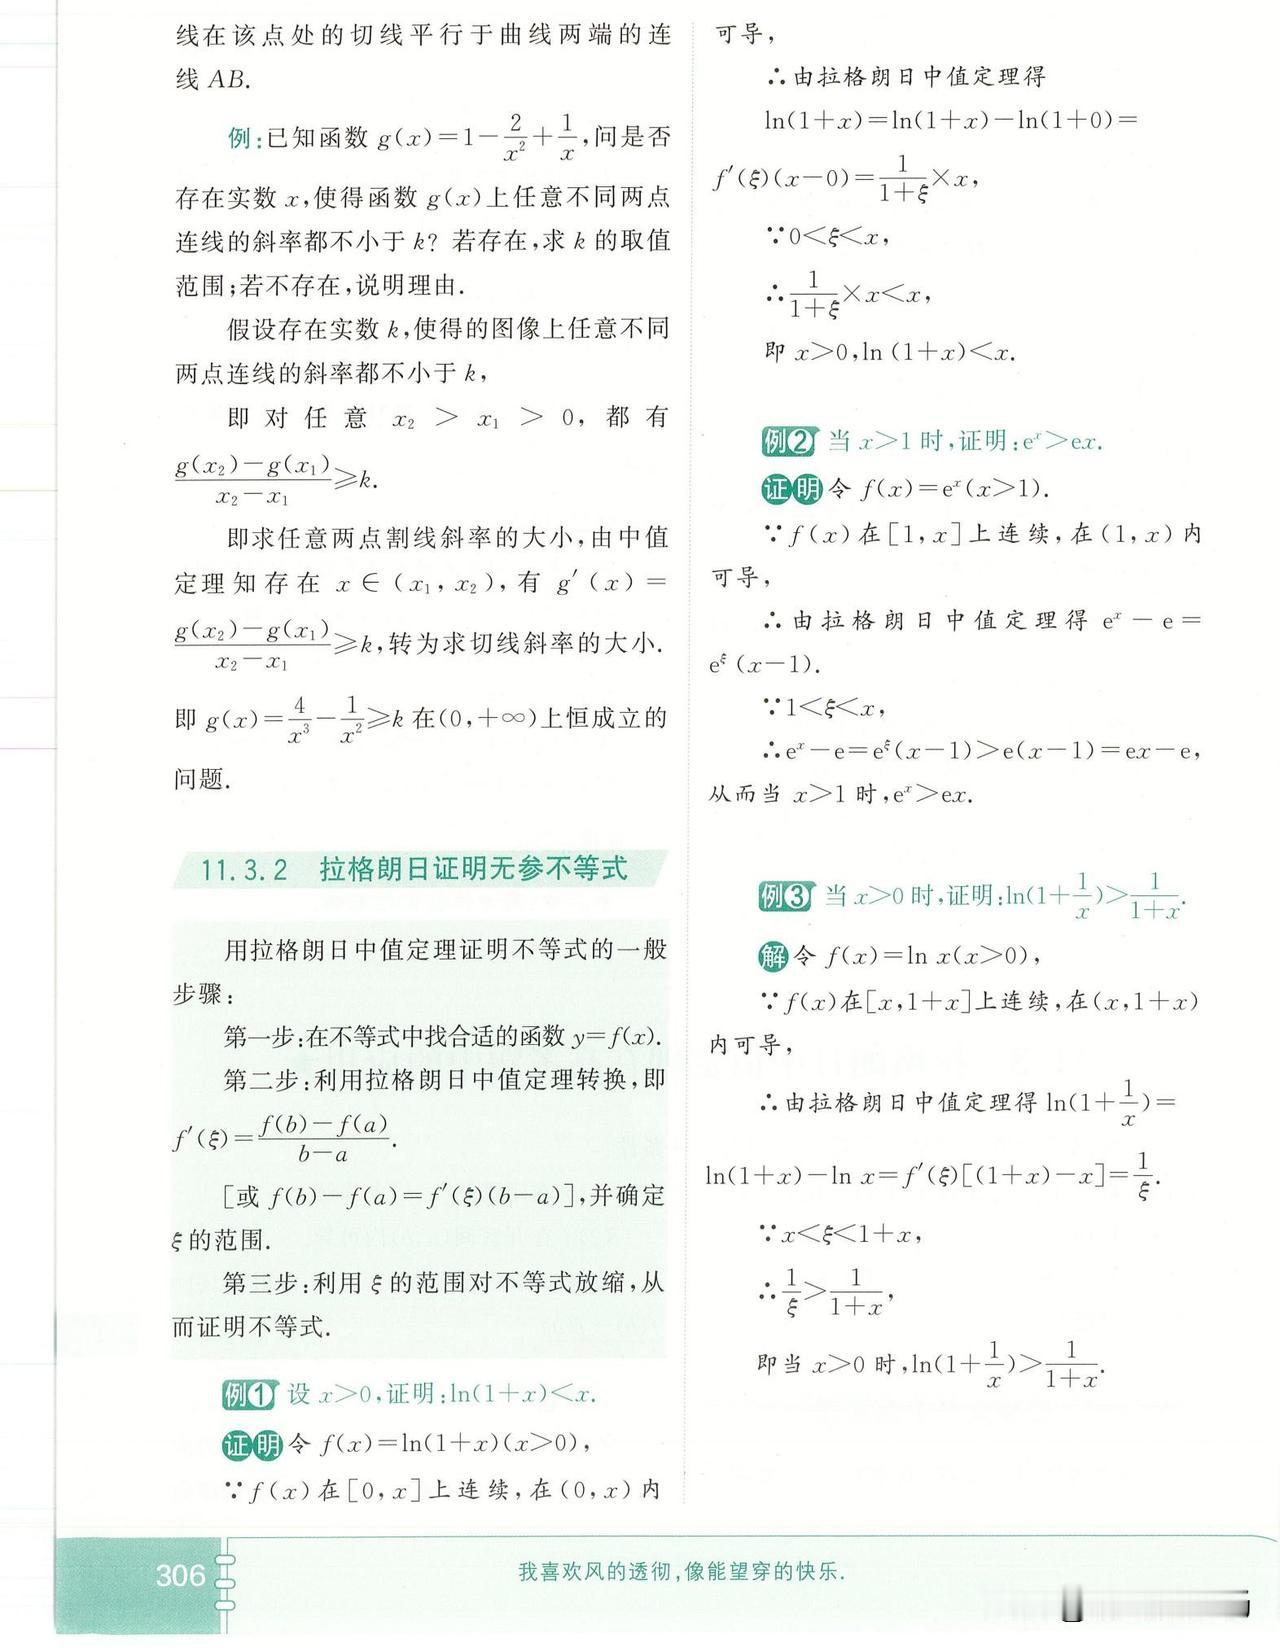 线在该点处的切线平行于曲线两端的连
线 AB.
例:已知函数 g(x)=1-2/x²+1/x,问是否
存在实数 x,使得函数 g(x)上任意不同两点
连线的斜率都不小于 k? 若存在,求 k 的取值
范围;若不存在,说明理由.
假设存在实数 k,使得的图像上任意不同
两点连线的斜率都不小于 k,
即对任意 x₂ > x₁ > 0, 都有
(g(x₂)-g(x₁))/(x₂-x₁)≥k.
即求任意两点割线斜率的大小,由中值
定理知存在 x∈(x₁,x₂),有 g′(x)=
(g(x₂)-g(x₁))/(x₂-x₁)≥k,转为求切线斜率的大小.
即 g(x)=4/x³-1/x²≥k 在(0,+∞)上恒成立的
问题.
11.3.2 拉格朗日证明无参不等式
用拉格朗日中值定理证明不等式的一般
步骤:
第一步:在不等式中找合适的函数 y=f(x).
第二步:利用拉格朗日中值定理转换,即
f′(ξ)=(f(b)-f(a))/(b-a).
[或 f(b)-f(a)=f′(ξ)(b-a)],并确定
ξ的范围.
第三步:利用 ξ 的范围对不等式放缩,从
而证明不等式.
例1 设 x>0,证明:ln(1+x)<x.
证明 令 f(x)=ln(1+x)(x>0),
∵f(x)在[0,x]上连续,在(0,x)内
可导,
∴由拉格朗日中值定理得
ln(1+x)=ln(1+x)-ln(1+0)=
f′(ξ)(x-0)=1/(1+ξ)×x,
∵0<ξ<x,
∴1/(1+ξ)×x<x,
即 x>0,ln (1+x)<x.
例2 当 x>1 时,证明:eˣ>ex.
证明 令 f(x)=eˣ(x>1).
∵f(x)在[1,x]上连续,在(1,x)内
可导,
∴由拉格朗日中值定理得 eˣ-e=
e^ξ(x-1).
∵1<ξ<x,
∴eˣ-e=e^ξ(x-1)>e(x-1)=ex-e,
从而当 x>1 时,eˣ>ex.
例3 当 x>0 时,证明:ln(1+1/x)>1/(1+x).
解 令 f(x)=ln x(x>0),
∵f(x)在[x,1+x]上连续,在(x,1+x)
内可导,
∴由拉格朗日中值定理得 ln(1+1/x)=
ln(1+x)-ln x=f′(ξ)[(1+x)-x]=1/ξ.
∵x<ξ<1+x,
∴1/ξ>1/(1+x),
即当 x>0 时,ln(1+1/x)>1/(1+x).
306
我喜欢风的透彻,像能望穿的快乐.